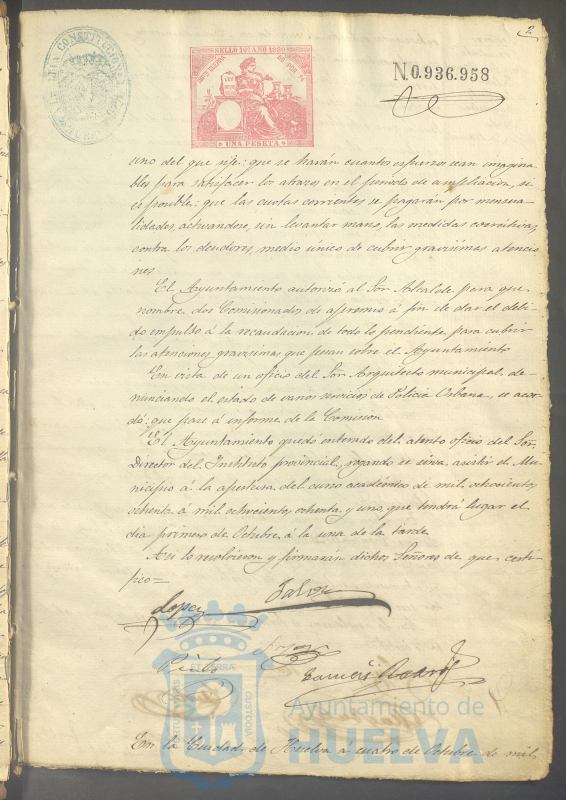 2
SELLO 10º AÑO 1880
UNA PESETA
N.0.936.958
uno del que rije: que se harán cuantos esfuerzos sean imagina-
bles para satisfacer los atrazos en el periodo de ampliacion, si
es posible: que las cuotas corrientes se pagarán por mensua-
lidades, activandose, sin levantar mano, las medidas coercitivas
contra los deudores, medio único de cubrir gravisimas atencio-
nes.
El Ayuntamiento autorizó al Sor. Alcalde para que
nombre dos Comisionados de apremio á fin de dar el debi-
do empulso á la recaudacion de todo lo pendiente, para cubrir
las atenciones gravisimas que pesan sobre el Ayuntamiento
En vista de un oficio del Sor. Arquitecto municipal, de-
nunciando el estado de varios servicios de Policia Urbana, se acor-
dó: que pase á informe de la Comision
El Ayuntamiento quedó enterado del atento oficio del Sor.
Director del Instituto provincial, rogando se sirva asistir el Mu-
nicipio á la apertura del curso académico de mil ochocientos
ochenta á mil ochocientos ochenta y uno, que tendrá lugar el
dia primero de Octubre á la una de la tarde
Asi lo resolvieron y firmarán dichos Señores de que certi-
fico=
Lopez
ET TERRA
CUSTODIA
Ayuntamiento de
HUELVA
En la Ciudad de Huelva á cuatro de Octubre de mil